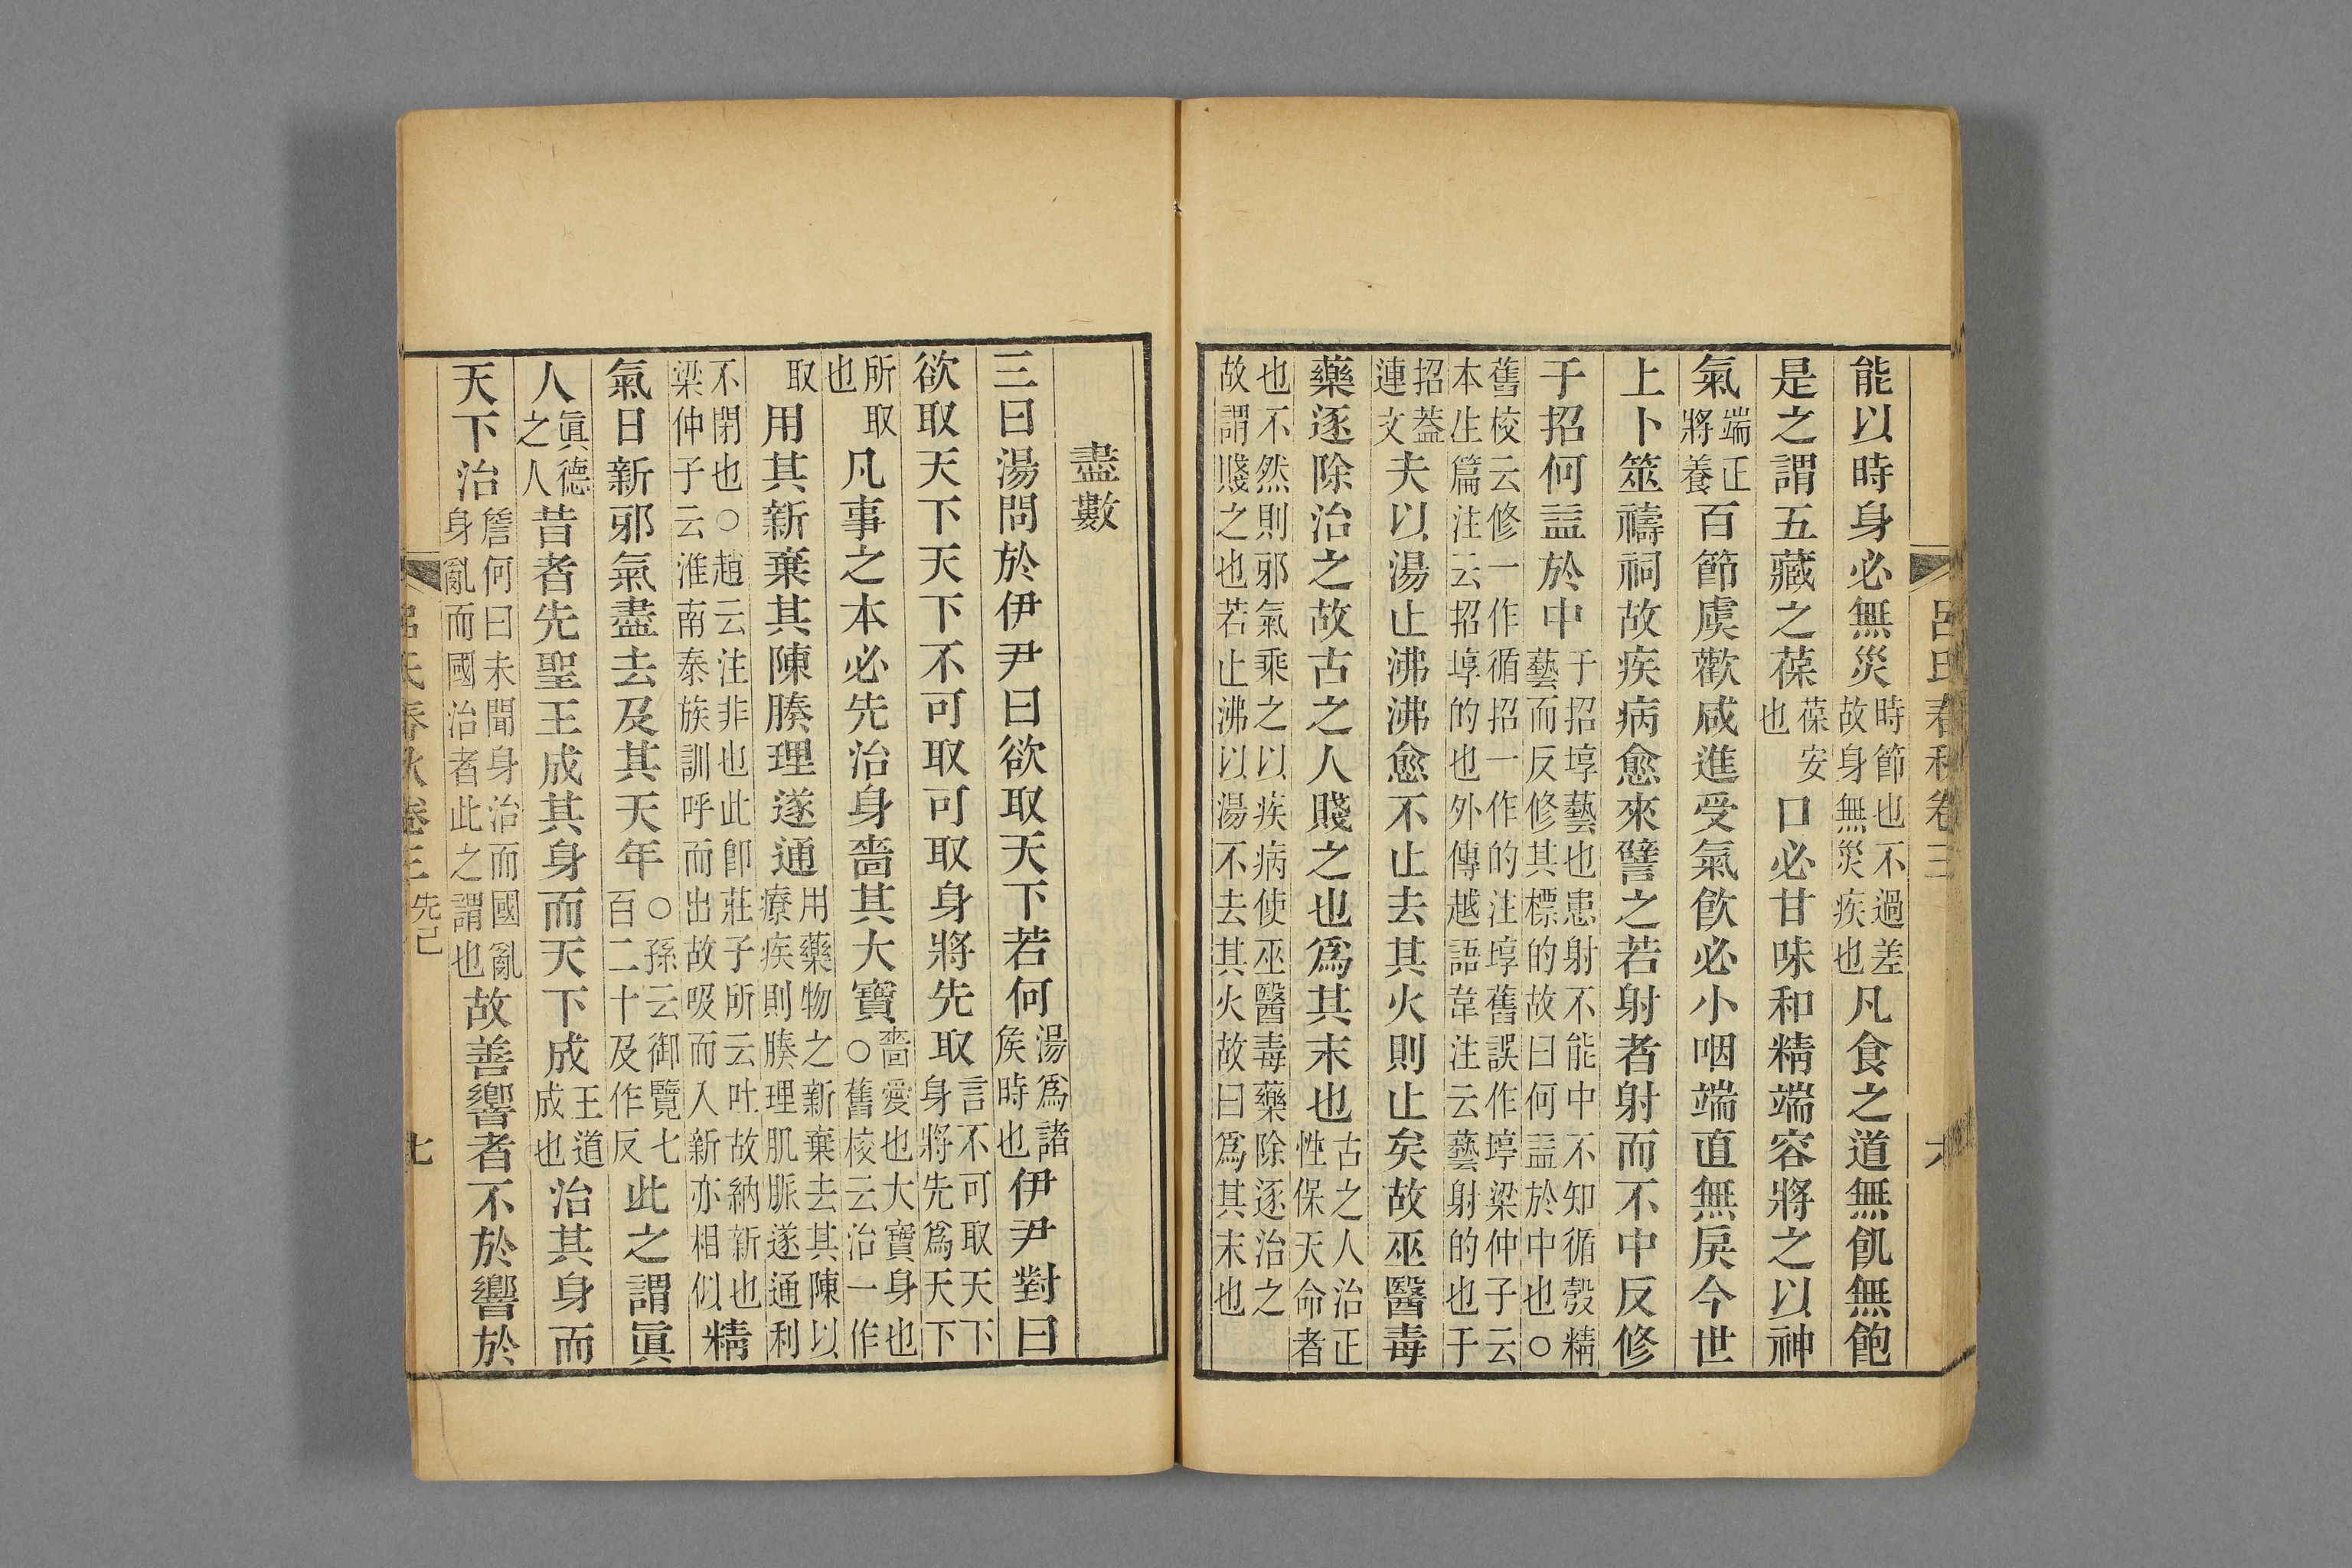 呂氏春秋卷三
能以時身必無災時節也不過差故身無災疾也凡食之道無飢無飽
是之謂五藏之葆葆安也口必甘味和精端容將之以神
氣端正將養百節虞歡咸進受氣飮必小咽端直無戾今世
上卜筮禱祠故疾病愈來譬之若射者射而不中反修
于招何益於中于招埻藝也患射不能中不知循彀精藝而反修其標的故曰何益於中也○
舊校云修一作循招一作的注埻舊誤作埻梁仲子云本生篇注云招埻的也外傳越語韋注云藝射的也于
招蓋連文夫以湯止沸沸愈不止去其火則止矣故巫醫毒
藥逐除治之故古之人賤之也爲其末也古之人治正性保天命者
也不然則邪氣乘之以疾病使巫醫毒藥除逐治之故謂賤之也若止沸以湯不去其火故曰爲其末也
盡數
三曰湯問於伊尹曰欲取天下若何湯爲諸矦時也伊尹對曰
欲取天下天下不可取可取身將先取言不可取天下身將先爲天下
所取也凡事之本必先治身嗇其大寶嗇愛也大寶身也○舊校云治一作
取用其新棄其陳腠理遂通用藥物之新棄去其陳以療疾則腠理肌脈遂通利
不閉也○趙云注非也此卽莊子所云吐故納新也梁仲子云淮南泰族訓呼而出故吸而入新亦相似精
氣日新邪氣盡去及其天年○孫云御覽七百二十及作反此之謂眞
人眞德之人昔者先聖王成其身而天下成王道成也治其身而
天下治詹何曰未聞身治而國亂身亂而國治者此之謂也故善響者不於響於
呂氏春秋卷三 先己 七